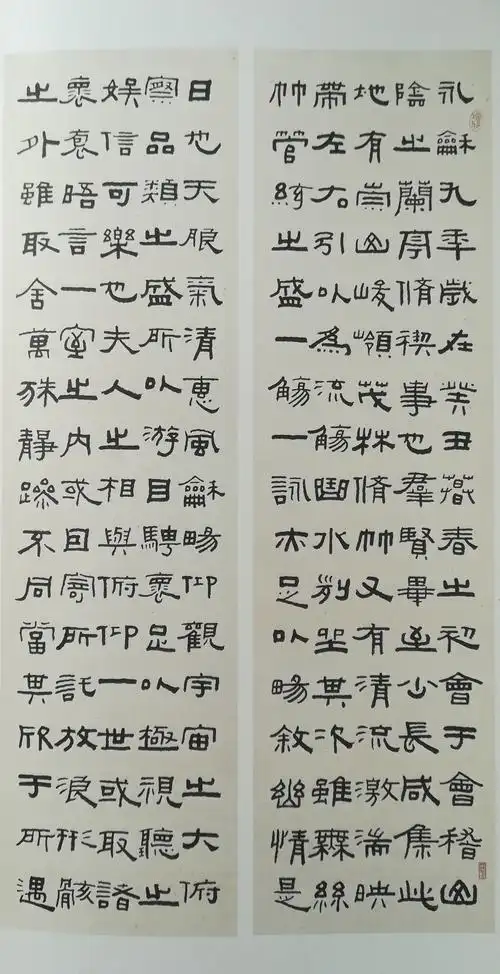 永龢九年歲在癸丑暮春之初會于會稽山
陰之蘭亭脩禊事也羣賢畢至少長咸集此
地有崇山峻嶺茂林脩竹又有清流激湍映
帶左右引以為流觴曲水列坐其次雖無絲
竹管絃之盛一觴一詠亦足以暢敘幽情是
日也天朗氣清惠風龢暢仰觀宇宙之大俯
察品類之盛所以游目騁懷足以極視聽之
娛信可樂也夫人之相與俯仰一世或取諸
懷袌晤言一室之內或因寄所託放浪形骸
之外雖取舍萬殊靜躁不同當其欣于所遇